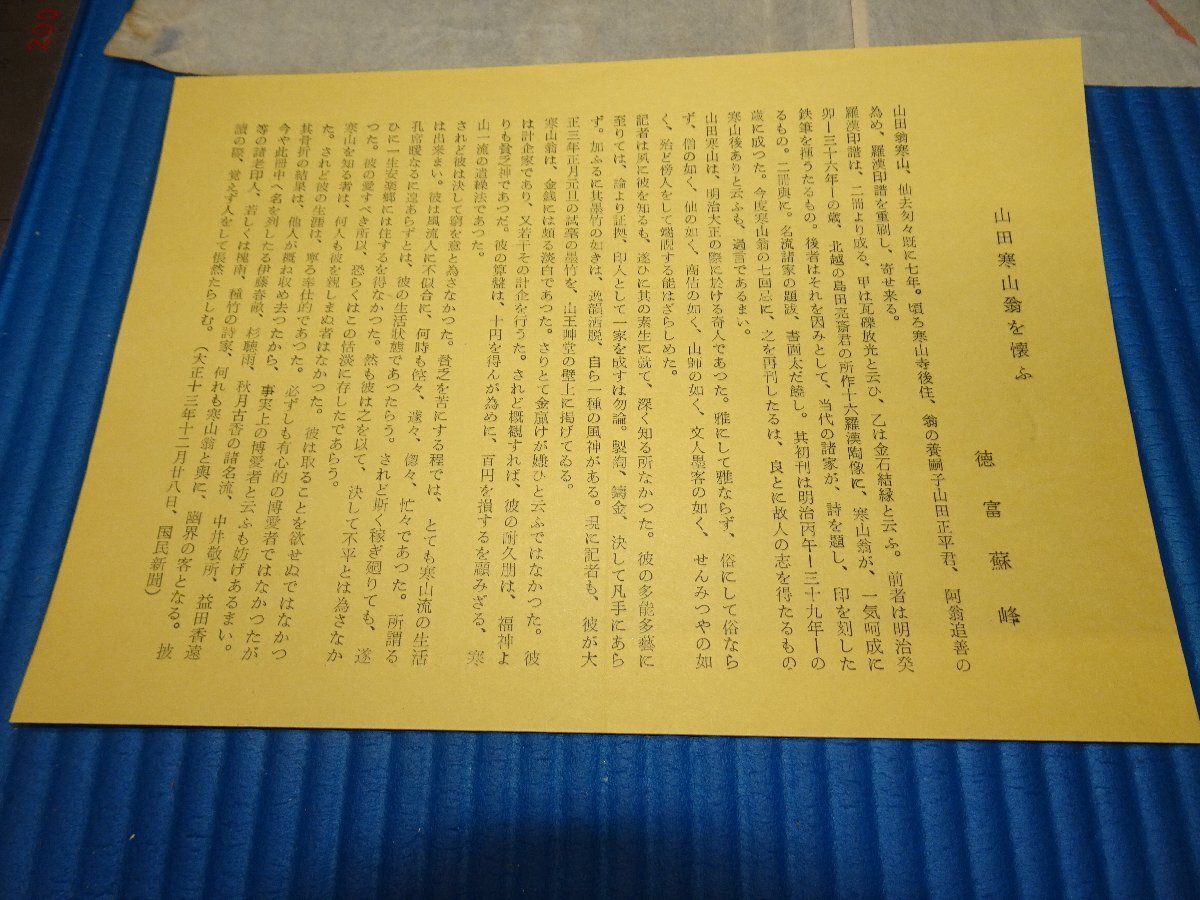 山田寒山翁を懐ふ
徳富蘇峰
山田翁寒山、仙去匆々既に七年。頃ろ寒山寺後住、翁の養嗣子山田正平君、阿翁追善の
為め、羅漢印譜を重刷し、寄せ来る。
羅漢印譜は、二冊より成る、甲は瓦礫放光と云ひ、乙は金石結縁と云ふ。前者は明治癸
卯ー三十六年ーの歳、北越の島田亮斎君の所作十六羅漢陶像に、寒山翁が、一気呵成に
鉄筆を揮うたるもの。後者はそれを因みとして、当代の諸家が、詩を題し、印を刻した
るもの。二冊與に。名流諸家の題跋、書画太だ饒し。其初刊は明治丙午ー三十九年ーの
歳に成つた。今度寒山翁の七回忌に、之を再刊したるは、良とに故人の志を得たるもの
寒山後ありと云ふも、過言であるまい。
山田寒山は、明治大正の際に於ける奇人であつた。雅にして雅ならず、俗にして俗なら
ず、僧の如く、仙の如く、商估の如く、山師の如く、文人墨客の如く、せんみつやの如
く、殆ど傍人をして端睨する能はざらしめた。
記者は夙に彼を知るも、遂ひに其の素生に就て、深く知る所なかつた。彼の多能多藝に
至りては、論より証拠、印人として一家を成すは勿論。製陶、鋳金、決して凡手にあら
ず。加ふるに其墨竹の如きは、逸韻洒脱、自ら一種の風神がある。現に記者も、彼が大
正三年正月元旦の試毫の墨竹を、山王艸堂の壁上に掲げてゐる。
寒山翁は、金銭には頗る淡白であつた。さりとて金贏けが嫌ひと云ふではなかつた。彼
は計企家であり、又若干その計企を行うた。されど概観すれば、彼の耐久朋は、福神よ
りも貧乏神であつだ。彼の算盤は、十円を得んが為めに、百円を損するを顧みざる、寒
山一流の遣繰法であつた。
されど彼は決して窮を意と為さなかつた。貧乏を苦にする程では、とても寒山流の生活
は出来まい。彼は風流人に不似合に、何時も倥々、遽々、偬々、忙々であつた。所謂る
孔席暖なるに遑あらずとは、彼の生活狀態であつたらう。されど斯く稼ぎ廻りても、遂
ひに一生安楽郷には住するを得なかつた。然も彼は之を以て、決して不平とは為さなか
つた。彼の愛すべき所以、恐らくはこの恬淡に存したであらう。
寒山を知る者は、何人も彼を親しまぬ者はなかつた。彼は取ることを欲せぬではなかつ
た。されど彼の生涯は、寧ろ奉仕的であつた。必ずしも有心的の博愛者ではなかつたが
其骨折の結果は、他人が概ね収め去つたから、事実上の博愛者と云ふも妨げあるまい。
今や此冊中へ名を列したる伊藤春畝、杉聴雨、秋月古香の諸名流、中井敬所、益田香遠
等の諸老印人、若しくは槐南、種竹の詩家、何れも寒山翁と與に、幽界の客となる。披
讀の際、覚えず人をして悵然たらしむ。（大正十三年十二月廿八日、国民新聞）
200